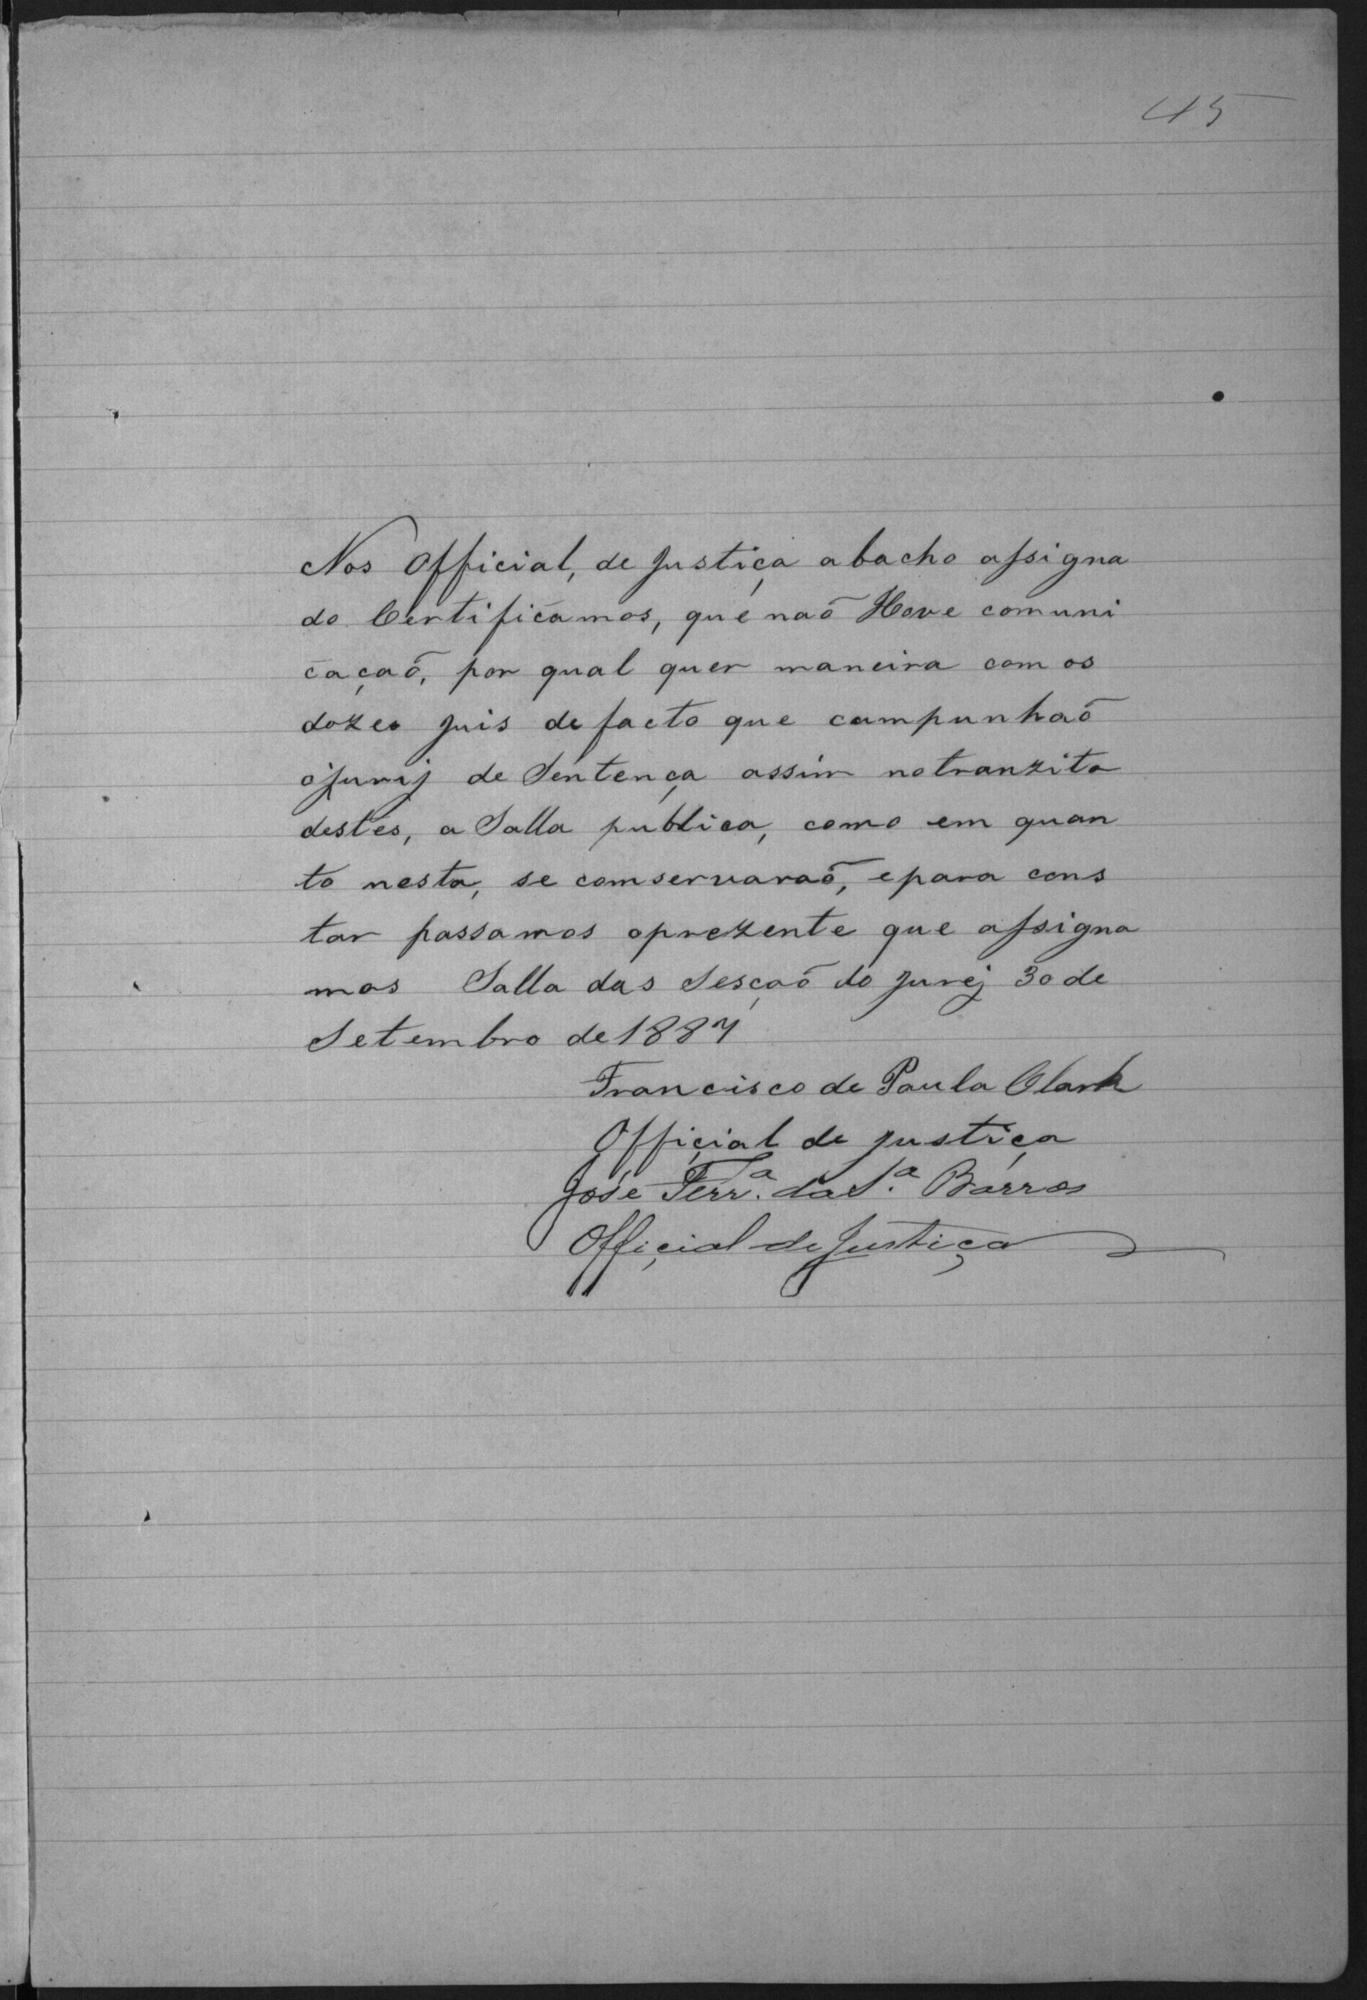 45
Nos Official, de Justiça abacho assigna
do Certificamos, que naõ Hove comuni
caçaõ, por qual quer maneira com os
dozes juis de facto que cumpunhaõ
ojurij de Sentença assim notranzito
destes, a Salla publica, como em quan
to nesta, se comservaraõ, epara cons
tar passamos oprezente que assigna
mos Salla das Sesçaõ do jurij 30 de
Setembro de 1887
Francisco de Paula Clark
Official de justiça
José Ferrª. da Sª. Barros
Official de Justiça